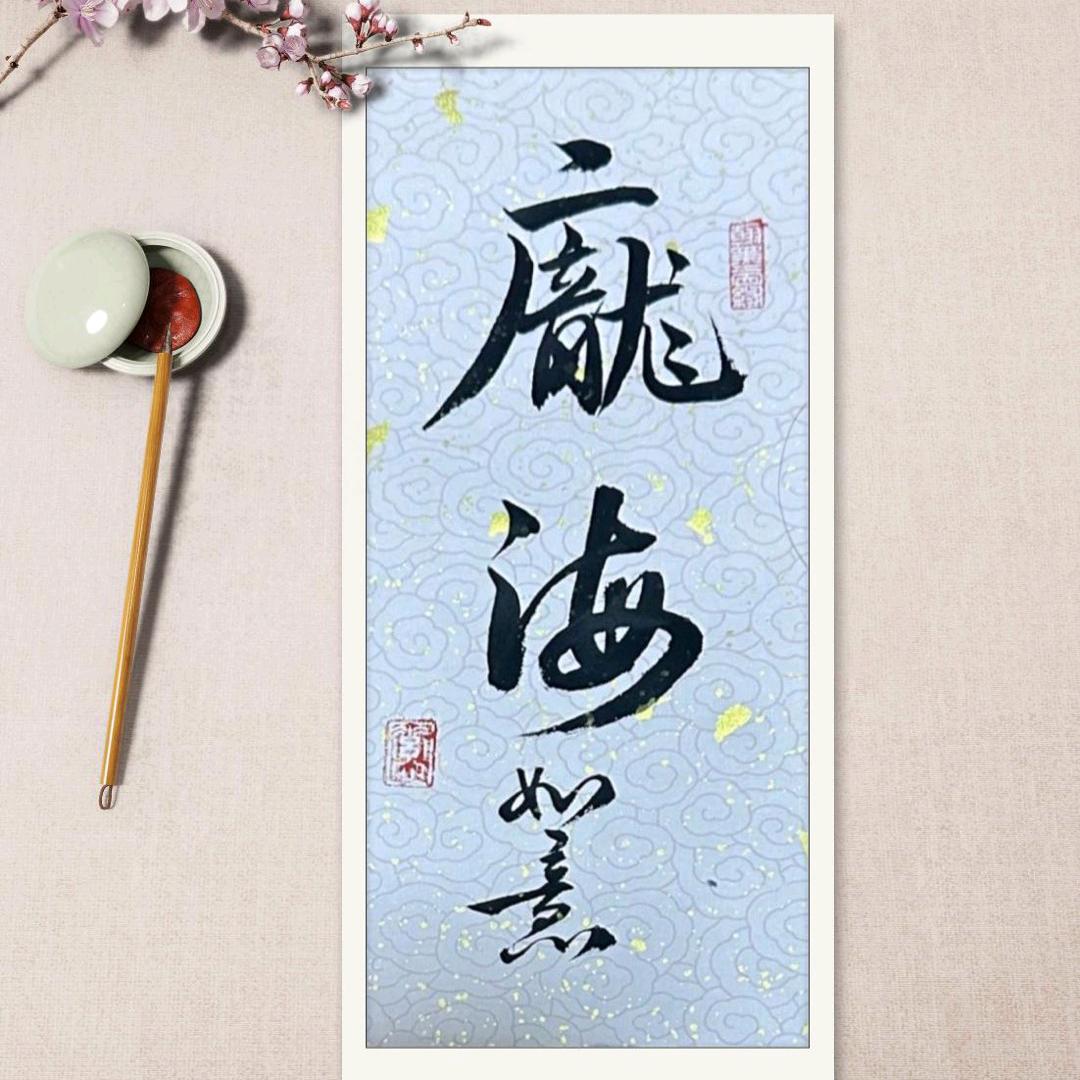 龐海
如意